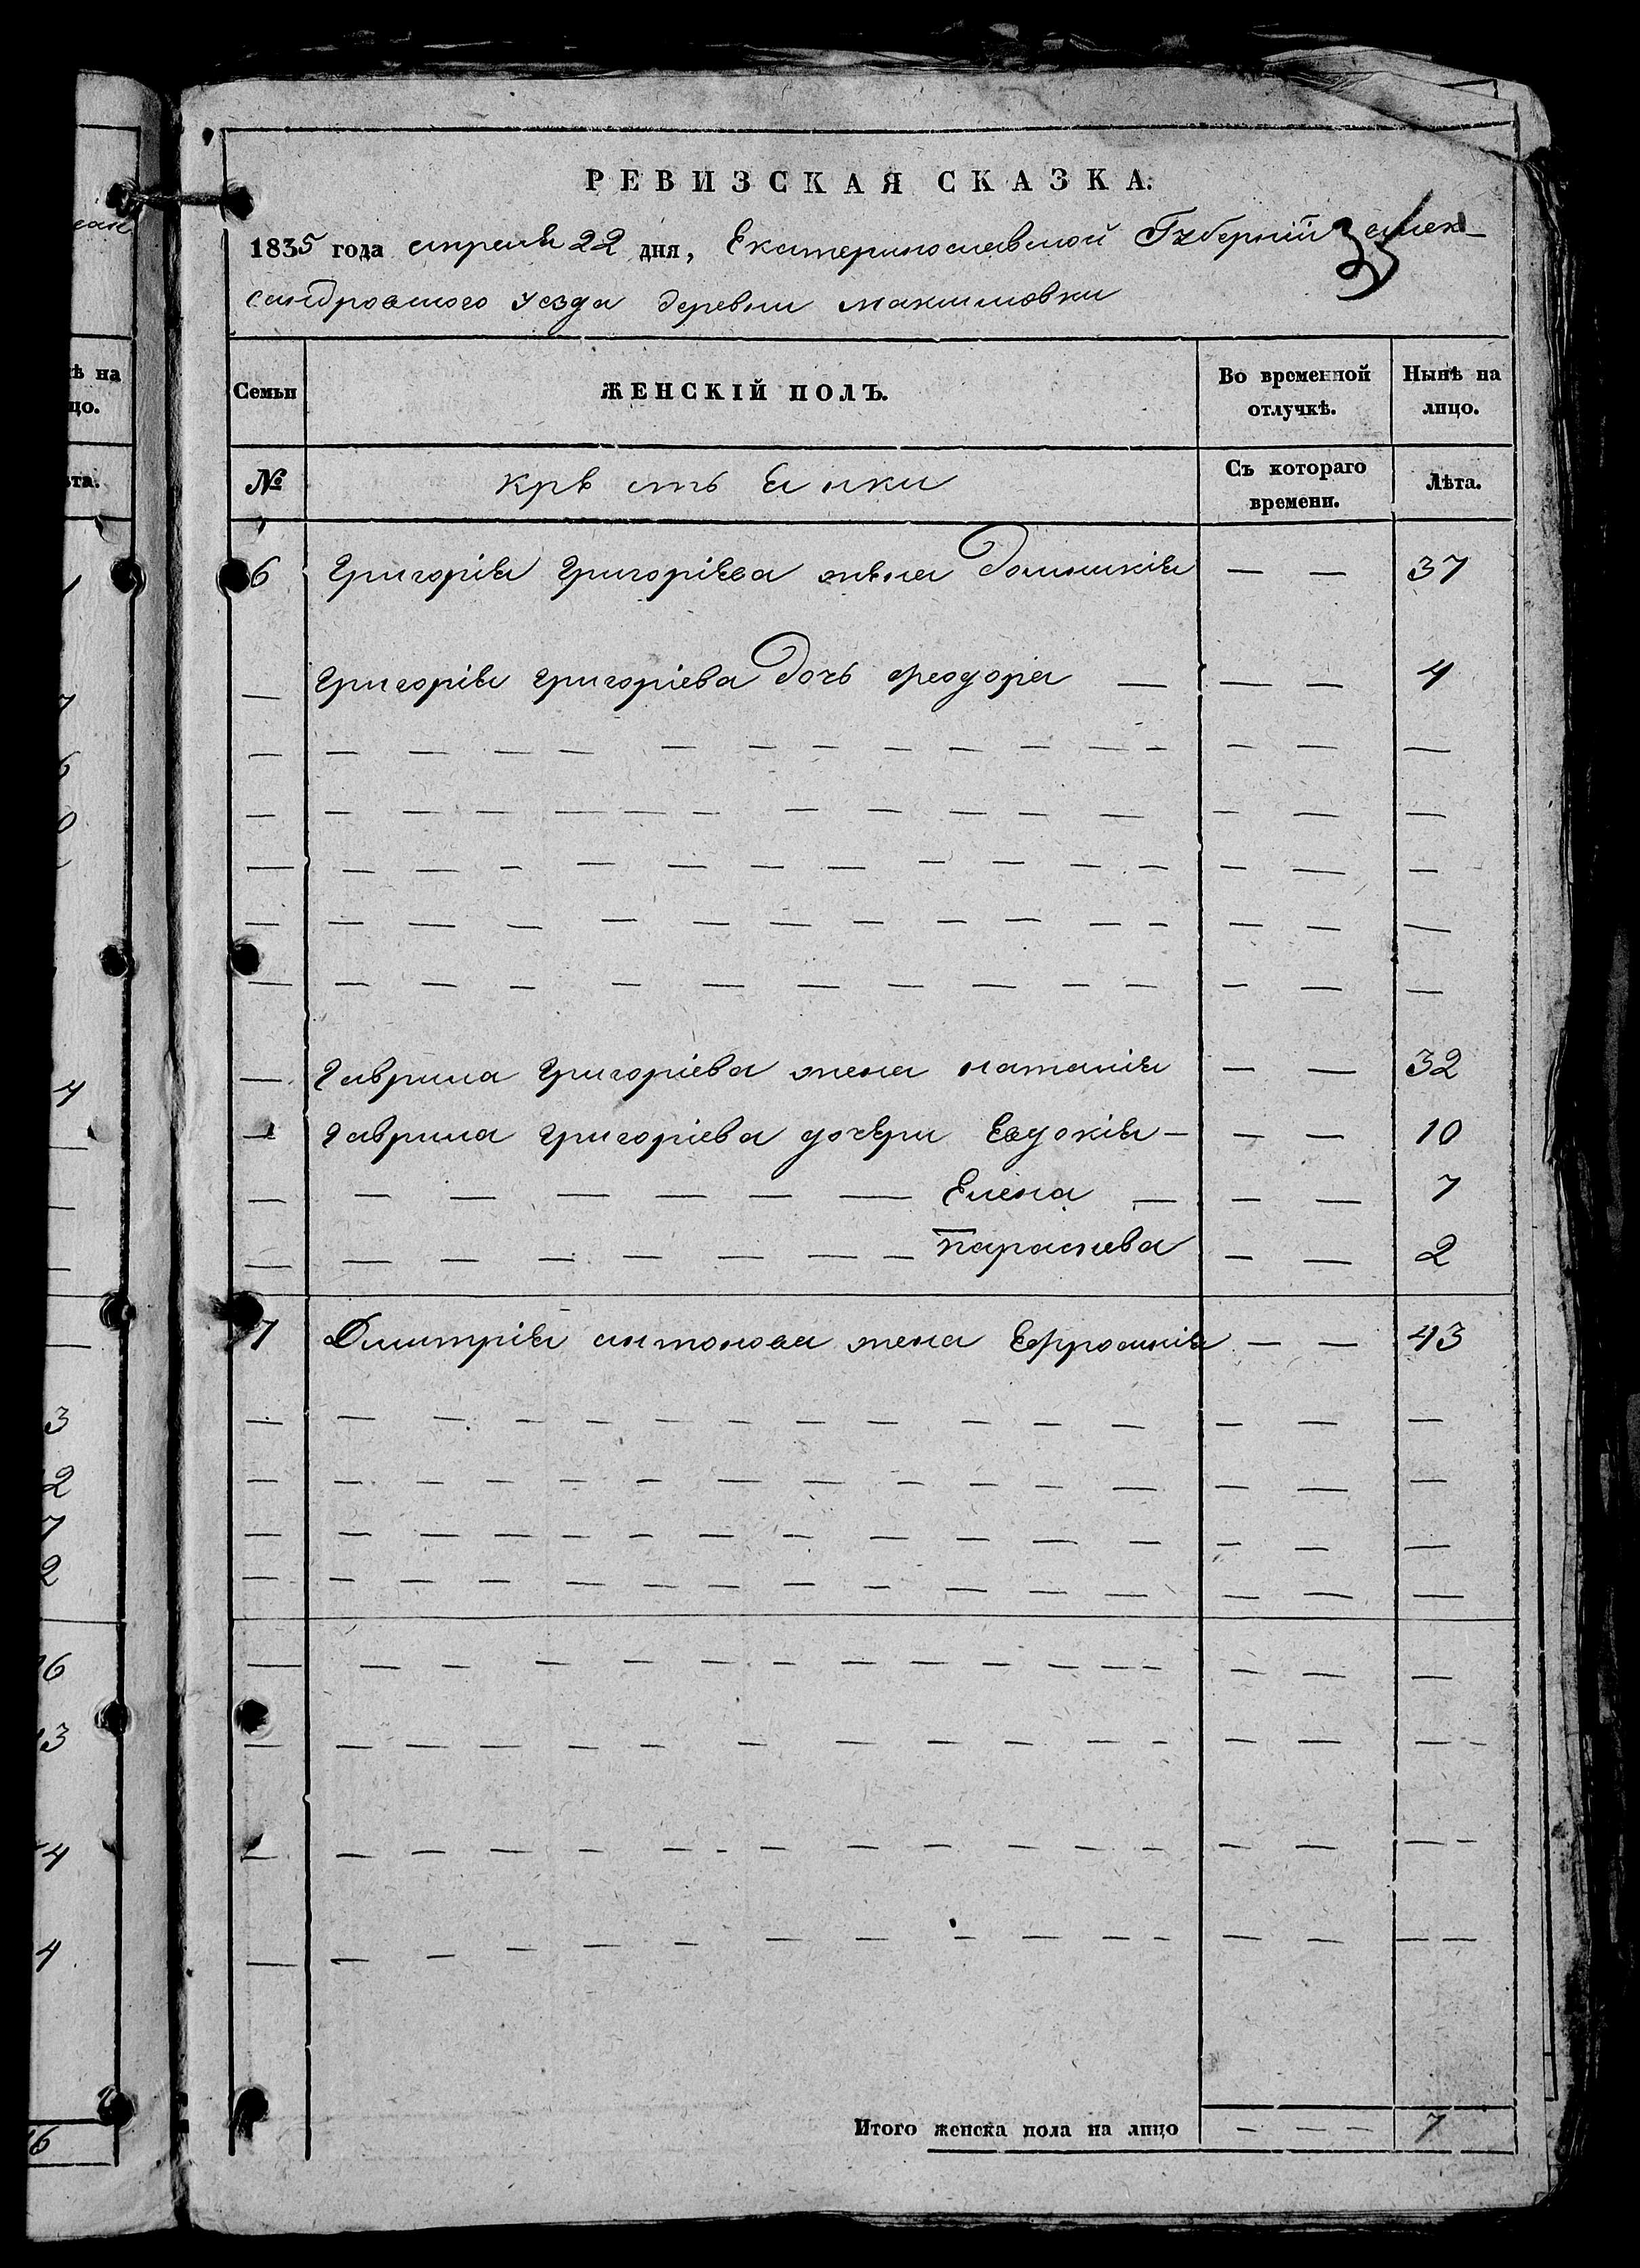 РЕВИЗСКАЯ СКАЗКА.
1835 года апреля 22 дня, Екатеринославской Губерніи Алек-
35
сандровского уезда деревни Максимовки
Семьи ЖЕНСКІЙ ПОЛЪ. Во временной отлучкѣ. Нынѣ на лицо.
№ крѣстьянки Съ котораго времени. Лѣта.
6 Григорія Григоріева жѣна Домникія — — 37
— Григорія Григоріева дочь Феодора — — — 4
— Гаврила Григоріева жена Наталія — — 32
— Гаврила Григоріева дочери Евдокія — — — 10
— — — — — — — Елена — — — 7
— — — — — — — — Параскева — — 2
7 Дмитрія Антонова жена Ефросинія — — 43
Итого женска пола на лицо — — — 7
ѣ на
цо.
ѣта.
4
3
2
7
2
16
13
4
4
16